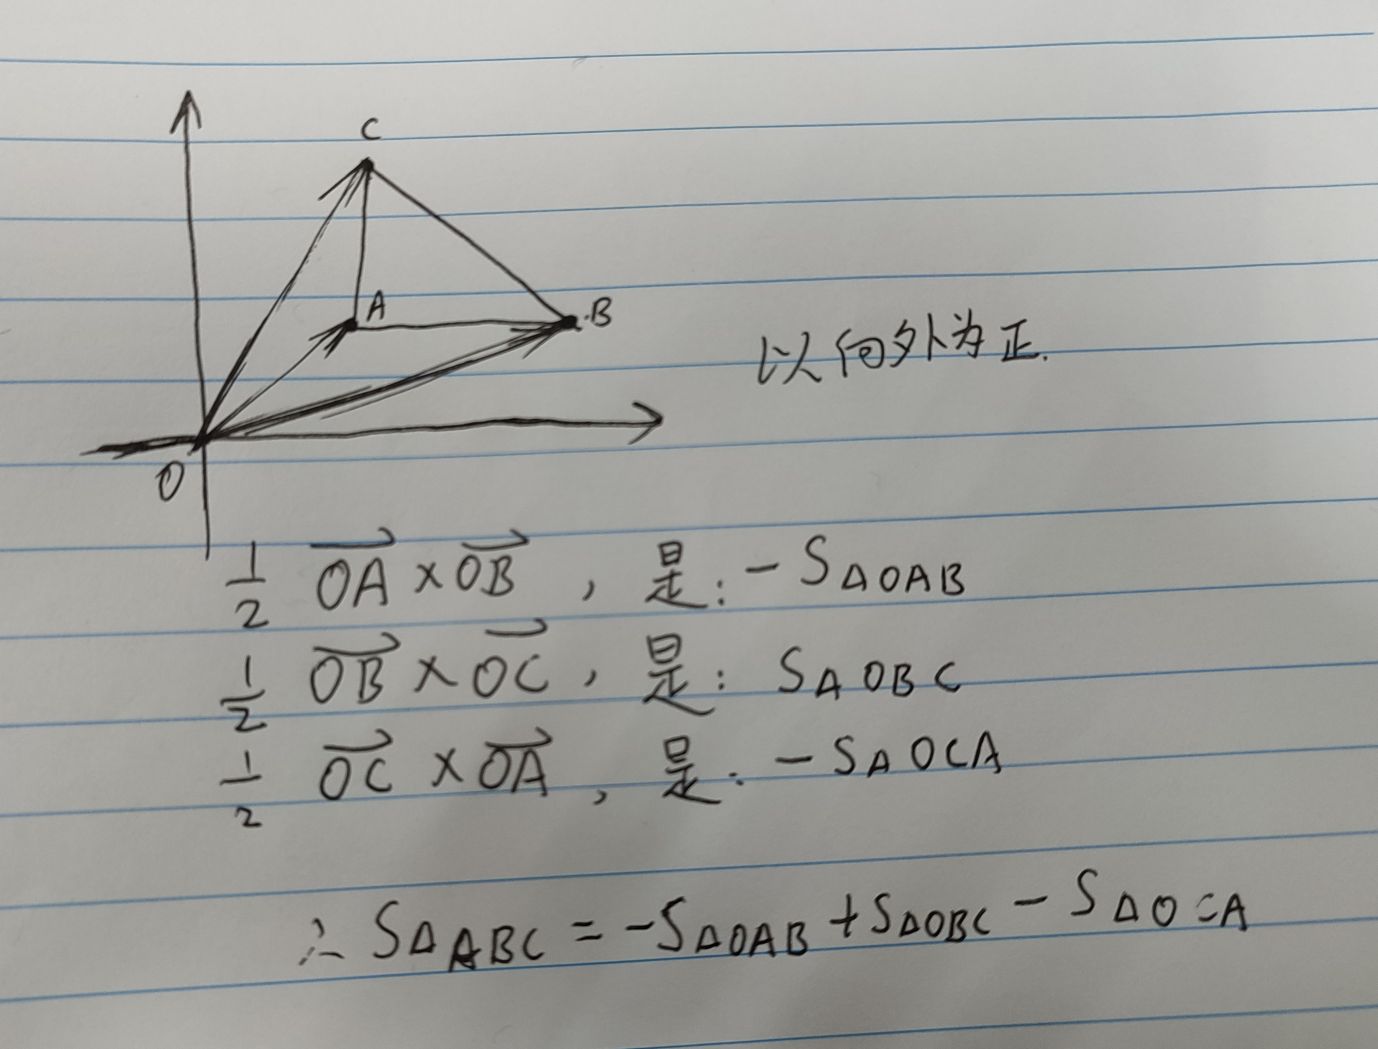 C
A
B
以向外为正.
O
1/2 OA × OB , 是: - S△OAB
1/2 OB × OC , 是: S△OBC
1/2 OC × OA , 是: - S△OCA
∴ S△ABC = -S△OAB + S△OBC - S△OCA